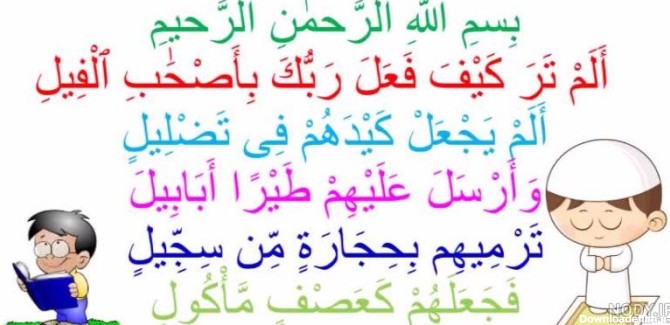 بِسْمِ اللَّهِ الرَّحْمَٰنِ الرَّحِيمِ
أَلَمْ تَرَ كَيْفَ فَعَلَ رَبُّكَ بِأَصْحَابِ الْفِيلِ
أَلَمْ يَجْعَلْ كَيْدَهُمْ فِى تَضْلِيلٍ
وَأَرْسَلَ عَلَيْهِمْ طَيْرًا أَبَابِيلَ
تَرْمِيهِم بِحِجَارَةٍ مِّن سِجِّيلٍ
فَجَعَلَهُمْ كَعَصْفٍ مَّأْكُولٍ